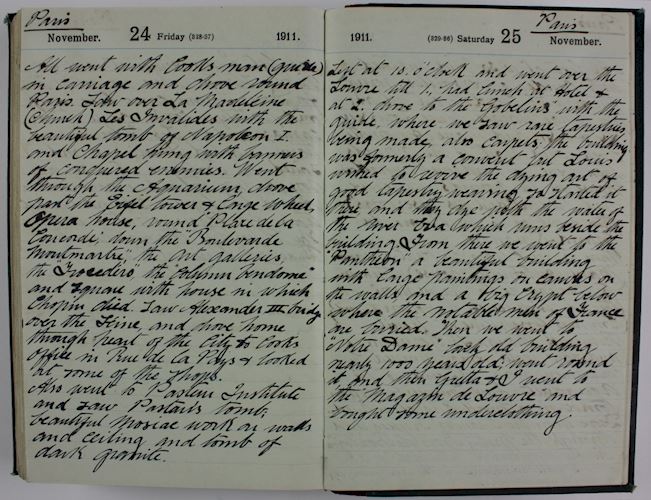 Paris
November. 24 Friday (328-37) 1911.
All went with Cooks man (guide)
in carriage and drove round
Paris. Saw over La Madeleine
(Church) Les Invalides with the
beautiful tomb of Napoleon I.
and Chapel hung with banners
of conquered enemies. Went
through the Aquarium, drove
past the Eiffel tower & large wheel,
Opera house, round Place de la
Concorde, down the Boulevarde
Montmartre, the art galleries,
the Trocedero the Column Vendome
and square with house in which
Chopin died. Saw Alexander III bridge
over the Seine, and drove home
through heart of the City to Cooks
Office in Rue de la Paix & looked
at some of the shops.
Also went to Pasteur Institute
and saw Pasteurs tomb,
beautiful Mosiac work on walls
and ceiling and tomb of
dark granite.
Paris
1911. (329-36) Saturday 25 November.
Left at 10. o'clock and went over the
Louvre till 1, had lunch at Hotel &
at 2. drove to the Gobelins with the
guide, where we saw rare tapestries
being made, also carpets, the building
was formerly a convent but Louis
wished to revive the dying art of
good tapestry weaving so started it
there and they dye with the water of
the river which runs beside the
building. From there we went to the
"Pantheon" a beautiful building
with large paintings on canvas on
the walls and a big Crypt below
where the notable men of France
are buried. Then we went to
"Notre Dame" back old building
nearly 1000 years old, went round
it, and then & I went to
the Magazin de Louvre and
bought some underclothing.